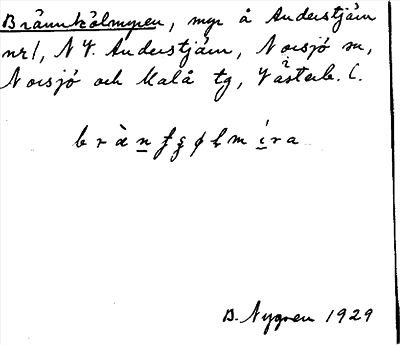 Brännkölmyren, myr å Anderstjärn
nr 1, N V. Anderstjärn, Norsjö sn,
Norsjö och Malå tg, Västerb. l.
B. Nygren 1929